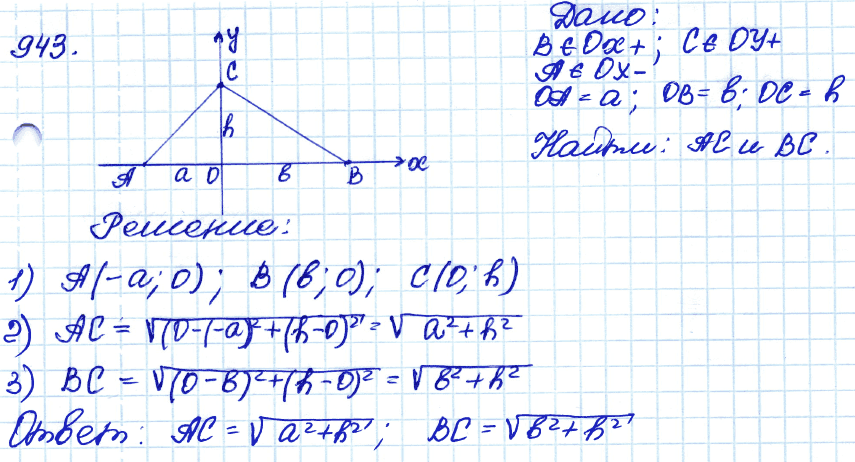 943.
y
C
h
A a O b B x
Дано:
B ∈ Ox+; C ∈ OY+
A ∈ OX-
OA = a; OB = b; OC = h
Найти: AC и BC.
Решение:
1) A(-a; 0); B(b; 0); C(0; h)
2) AC = √(0-(-a)² + (h-0)² = √a² + h²
3) BC = √(0-b)² + (h-0)² = √b² + h²
Ответ: AC = √a² + h²; BC = √b² + h²